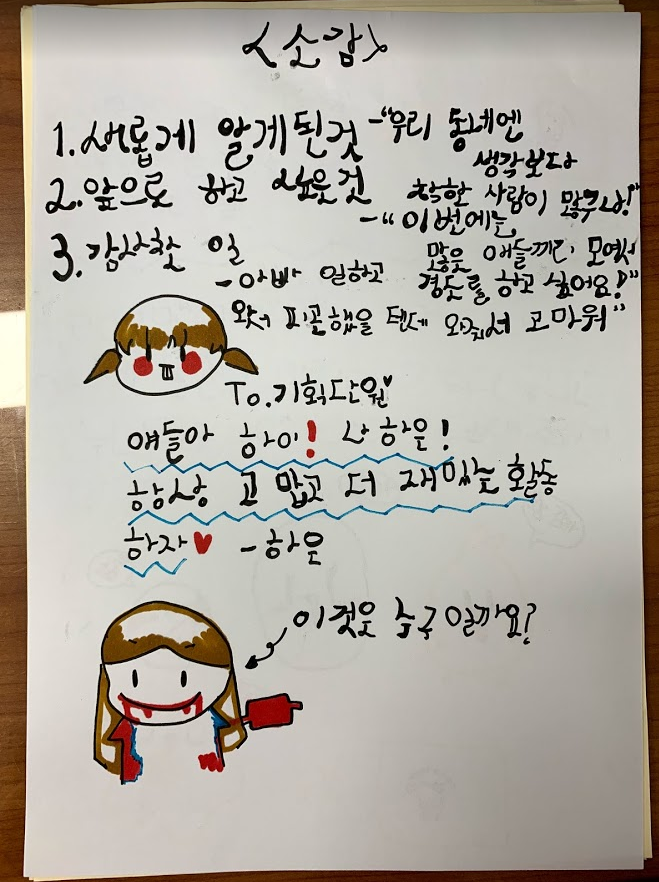 <소감>
1. 새롭게 알게된것 -"우리 동네엔
생각보다
착한 사람이 많구나!"
2. 앞으로 하고 싶은것
-"이번에는
많은 애들끼리 모여서
경도를 하고 싶어요!"
3. 감사한 일
-아빠 일하고
와서 피곤했을 텐데 와줘서 고마워"
To. 기획단원♥
얘들아 하이! 나 하은!
항상 고맙고 더 재밌는 활동
하자♥ -하은
이것은 누구일까요?